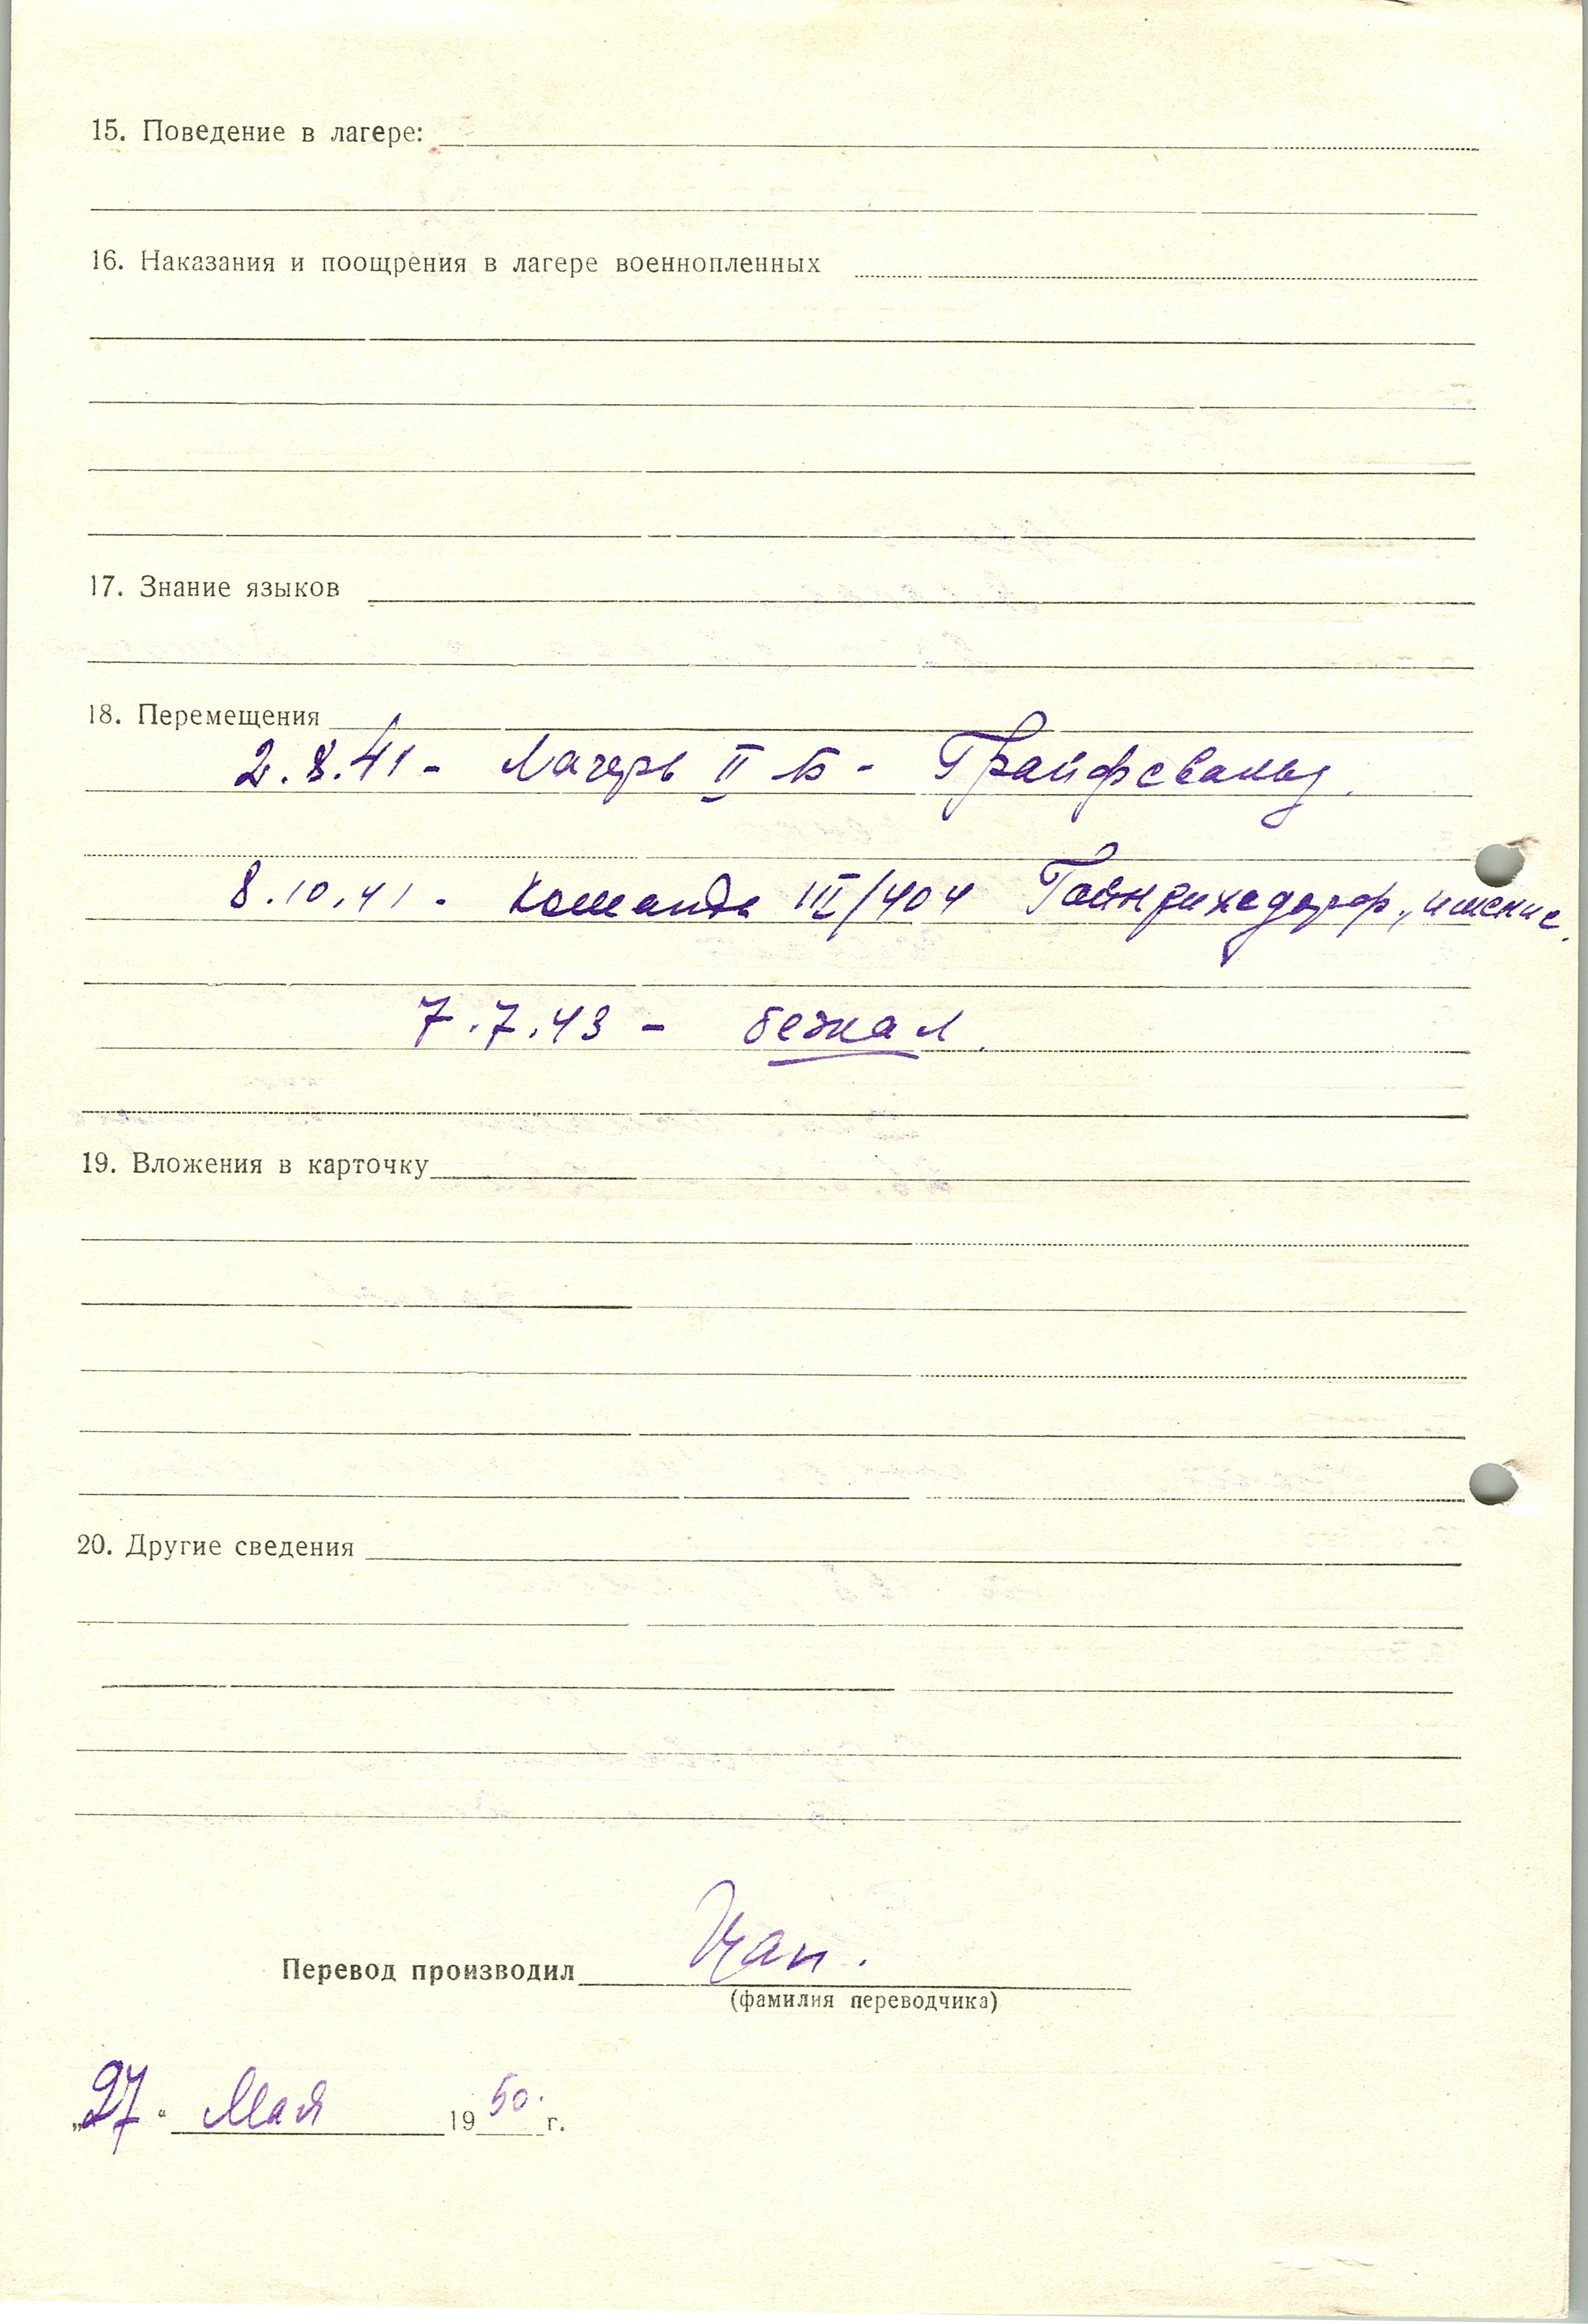 15. Поведение в лагере:
16. Наказания и поощрения в лагере военнопленных
17. Знание языков
18. Перемещения
2.8.41 - Лагерь II Б - Грайфсвальд.
8.10.41 - Команда III/404 Гайнрихсдорф, имение.
7.7.43 - бежал.
19. Вложения в карточку
20. Другие сведения
Перевод производил Цап.
(фамилия переводчика)
„27“ Мая 1950 г.